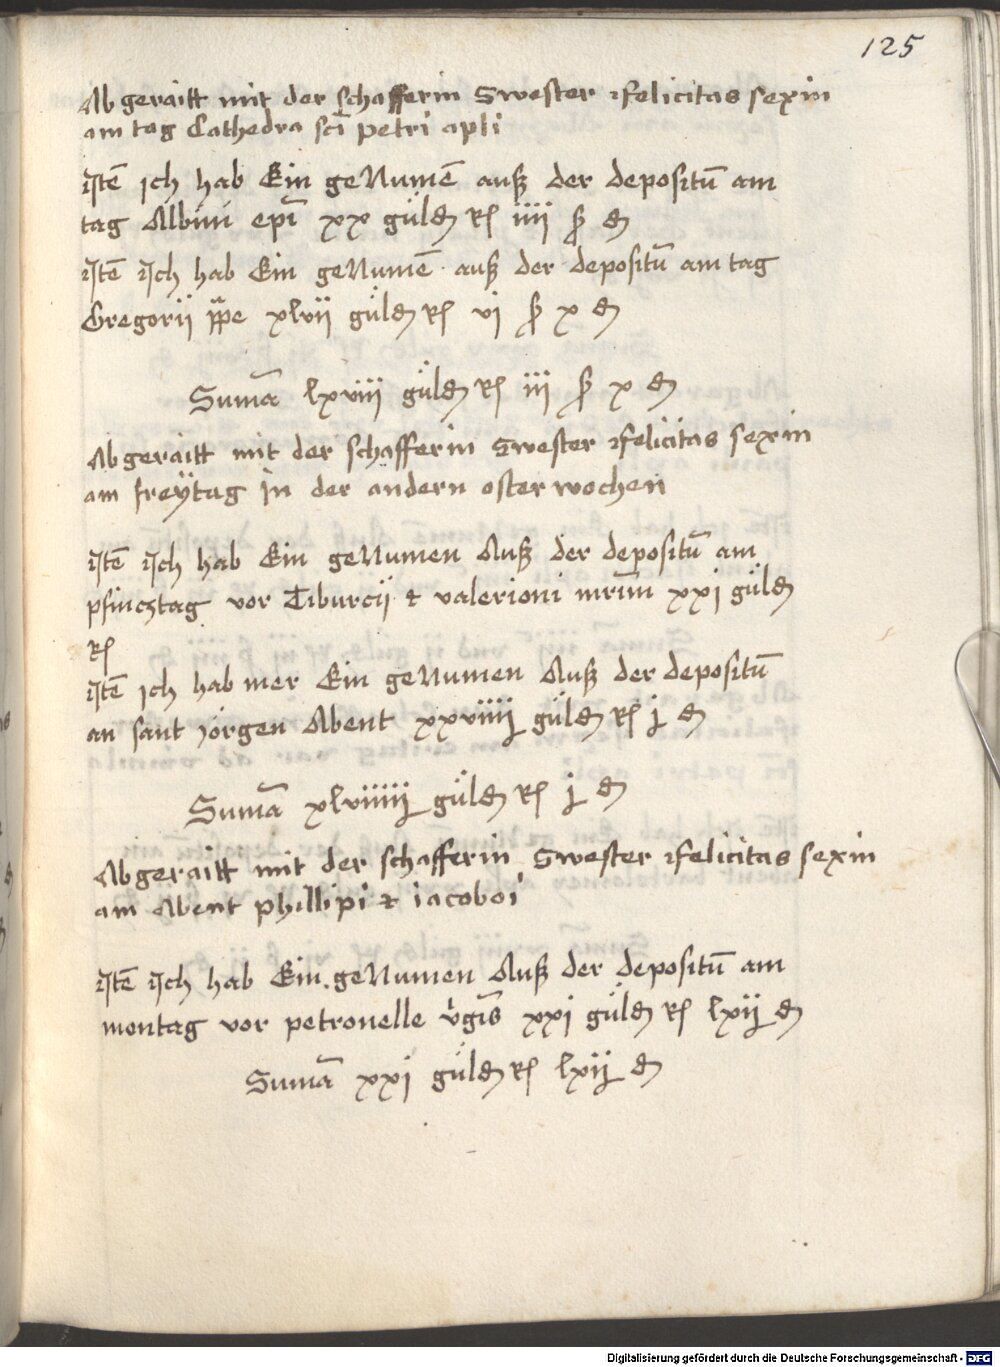 125
Abgeraitt mit der schafferin Swester felicitas sexin
am tag Cathedra sci petri apli
Itē ich hab Ein geNumē auß der depositū am
tag Albini epi xx güld rh iiij ß d
Itē Ich hab Ein geNumē auß der depositū am tag
Gregorii ppe xlvii güld rh vi ß x d
Sumā lxviii güld rh iii ß x d
Abgeraitt mit der schafferin Swester felicitas sexin
am freÿtag in der andern osterwochen
Itē Ich hab Ein geNumen Auß der depositū am
pfincztag vor Tiburcij et valerioni mrm xxi güld
rh
Itē ich hab mer Ein geNumen Auß der depositū
an sant Jörgen Abent xxviiij güld rh j d
Sumā xlviiiij güld rh j d
Abgeraitt mit der schafferin Swester felicitas sexin
am Abent phillipi et iacoboi
Itē Ich hab Ein geNumen Auß der depositū am
montag vor petronelle vgis xxi güld rh lxij d
Sumā xxi güld rh lxij d
Digitalisierung gefördert durch die Deutsche Forschungsgemeinschaft - DFG